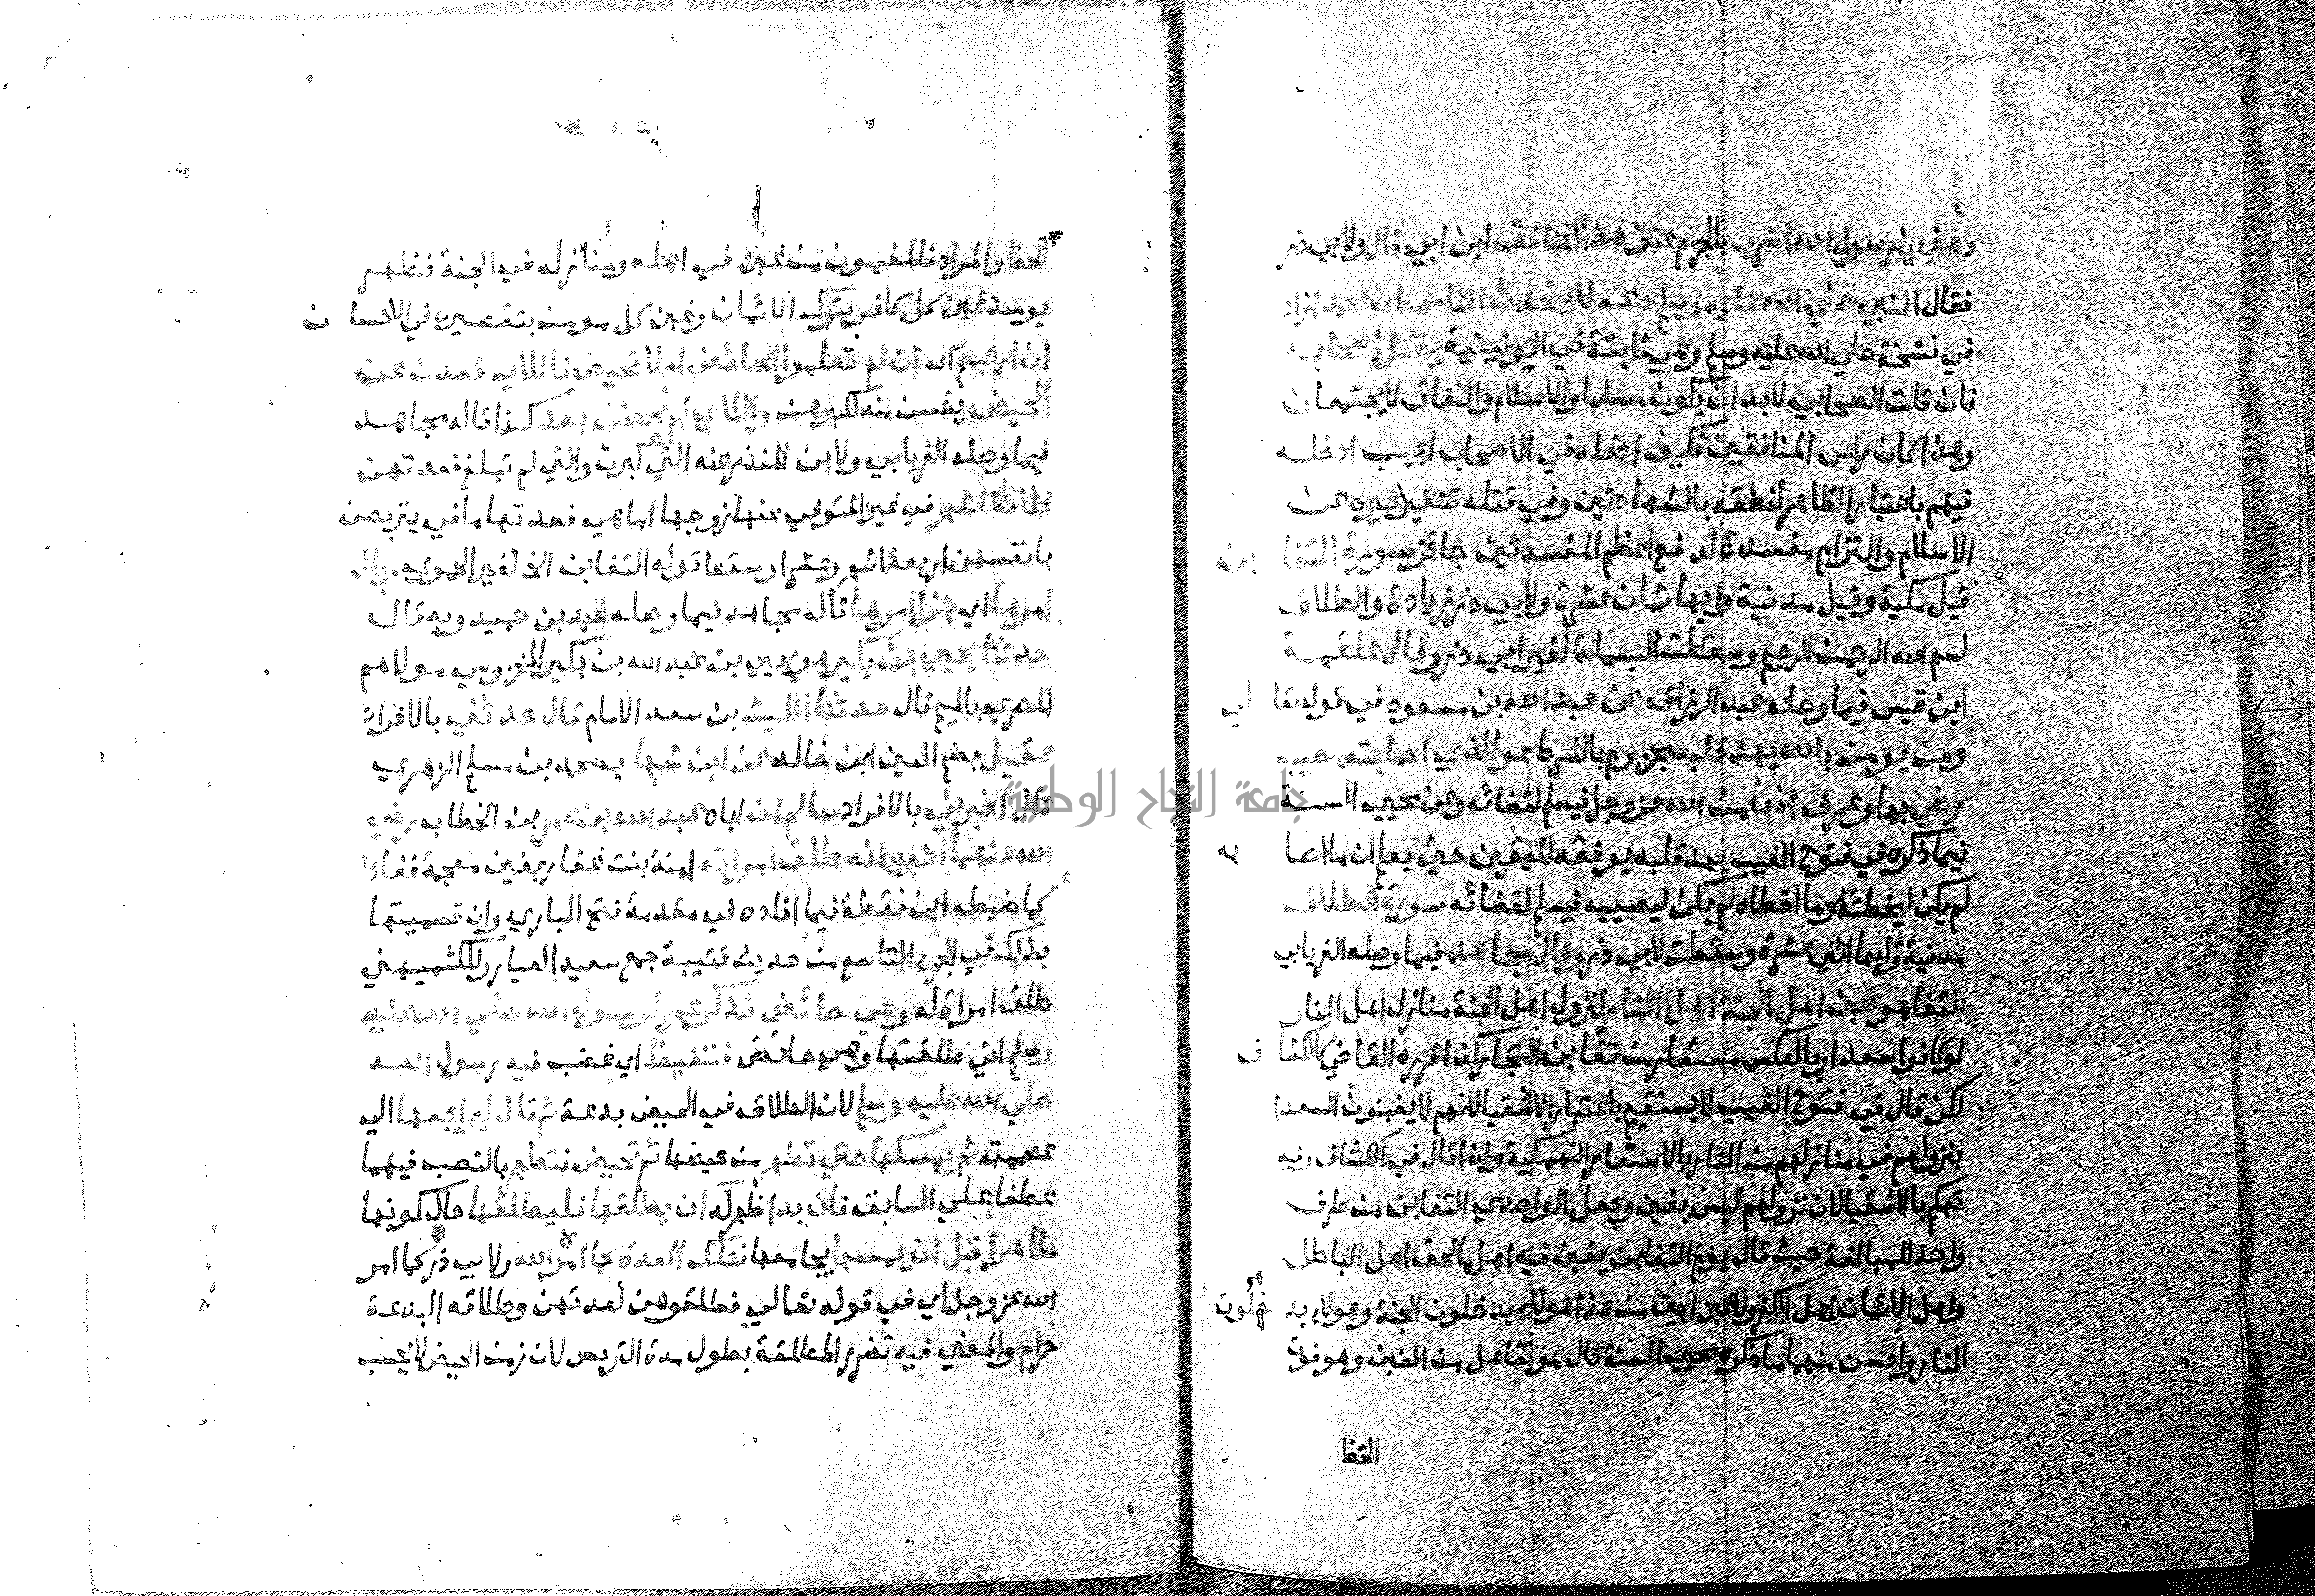 دعني يا رسول الله اضرب بالجزم عنق هذا المنافق ابن ابي قال ولابي ذر
فقال النبي صلي الله عليه وسلم دعه لا يتحدث الناس ان محمدا زاد
في نسخة صلي الله عليه وسلم وهي ثابتة في اليونينية يقتل اصحابه
فان قلت الصحابي لابد ان يكون مسلما والاسلام والنفاق لا يجتمعان
وهذا كان راس المنافقين فكيف ادخله في الاصحاب اجيب ادخله
فيهم باعتبار الظاهر لنطقه بالشهادتين وفي قتله تنفير غيره عن
الاسلام والتزام مفسدة لدفع اعظم المفسدتين جائز سورة التغابن
قيل مكية وقيل مدنية وايها ثمان عشرة ولابي ذر زيادة والطلاق
بسم الله الرحمن الرحيم وسقطت البسملة لغير ابي ذر وقال علقمة
ابن قيس فيما وصله عبد الرزاق عن عبد الله بن مسعود في قوله تعالي
ومن يومن بالله يهد قلبه مجزوم بالشرط هو الذي اصابته مصيبة
رضي بها وعرف انها من الله عز وجل فيسلم لقضائه وعن محيي السنة
فيما ذكره في فتوح الغيب يهد قلبه يوفقه لليقين حتي يعلم ان ما اصابه
لم يكن ليخطئه وما اخطاه لم يكن ليصيبه فيسلم لقضائه سورة الطلاق
مدنية وايها اثني عشرة وسقطت لابي ذر وقال مجاهد فيما وصله الفريابي
التغابن هو غبن اهل الجنة اهل النار لنزول اهل الجنة منازل اهل النار
لو كانوا سعدا وبالعكس مستعار من تغابن التجار كذا قرره القاضي كالكشاف
لكن قال في فتوح الغيب لا يستقيم باعتبار الاشقيا لانهم لا يغبنون السعدا
بنزولهم في منازلهم من النار بالاستعارة التهكمية ولذا قال في الكشاف وفيه
تهكم بالاشقيا لان نزولهم ليس بغبن وجعل الواحدي التغابن من طرف
واحد للمبالغة حيث قال يوم التغابن يغبن فيه اهل الحق اهل الباطل
واهل الايمان اهل الكفر ولا غبن ابين من هذا هولاء يدخلون الجنة وهولاء يدخلون
النار واحسن منهما ما ذكره محيي السنة قال هو تفاعل من الغبن وهو فوت
الحظ
الحظ والمراد فالمغبون من غبن في اهله ومنازله في الجنة فظهر
يومئذ غبن كل كافر بترك الايمان وغبن كل مومن بتقصيره في الاحسان
ان ارتبتم اي ان لم تعلموا اتحيض ام لا تحيض فاللاي قعدن عن
الحيض يئسن منه لكبرهن واللاي لم يحضن بعد كذا قاله مجاهد
فيما وصله الفريابي ولابن المنذر عنه التي كبرت والتي لم تبلغ فعدتهن
ثلاثة اشهر في غير المتوفي عنها زوجها اما هي فعدتها ما في يتربصن
بانفسهن اربعة اشهر وعشرا وسقط قوله التغابن الخ لغير الحموي وبال
امرها اي جزا امرها قاله مجاهد فيما وصله عبد بن حميد وبه قال
حدثنا يحيي بن بكير هو يحيي بن عبد الله بن بكير المخزومي مولاهم
المصري بالميم قال حدثنا الليث بن سعد الامام قال حدثني بالافراد
عقيل بضم العين ابن خالد عن ابن شهاب محمد بن مسلم الزهري
قال اخبرني بالافراد سالم ان اباه عبد الله بن عمر بن الخطاب رضي
الله عنهما اخبره انه طلق امراته امنة بنت غفار بغين معجمة ففاء
كما ضبطه ابن نقطة فيما افاده في مقدمة فتح الباري وان تسميتها
بذلك في الجزء التاسع من حديث قتيبة جمع سعيد العيار وللكشميهني
طلق امراة له وهي حائض فذكر عمر لرسول الله صلي الله عليه
وسلم اني طلقتها وهي حائض فتغيظ اي غضب فيه رسول الله
صلي الله عليه وسلم لان الطلاق في الحيض بدعة ثم قال ليراجعها الي
عصمته ثم يمسكها حتي تطهر من حيضها ثم تحيض فتطهر بالنصب فيهما
عطفا علي السابق فان بدا ظهر له ان يطلقها فليطلقها حال كونها
طاهرا قبل ان يمسها يجامعها فتلك العدة كما امر الله ولابي ذر كما امر
الله عز وجل اي في قوله تعالي فطلقوهن لعدتهن وطلاقه البدعة
حرام والمعني فيه تضرر المطلقة بطول مدة التربص لان زمن الحيض لا يحسب
جامعة النجاح الوطنية